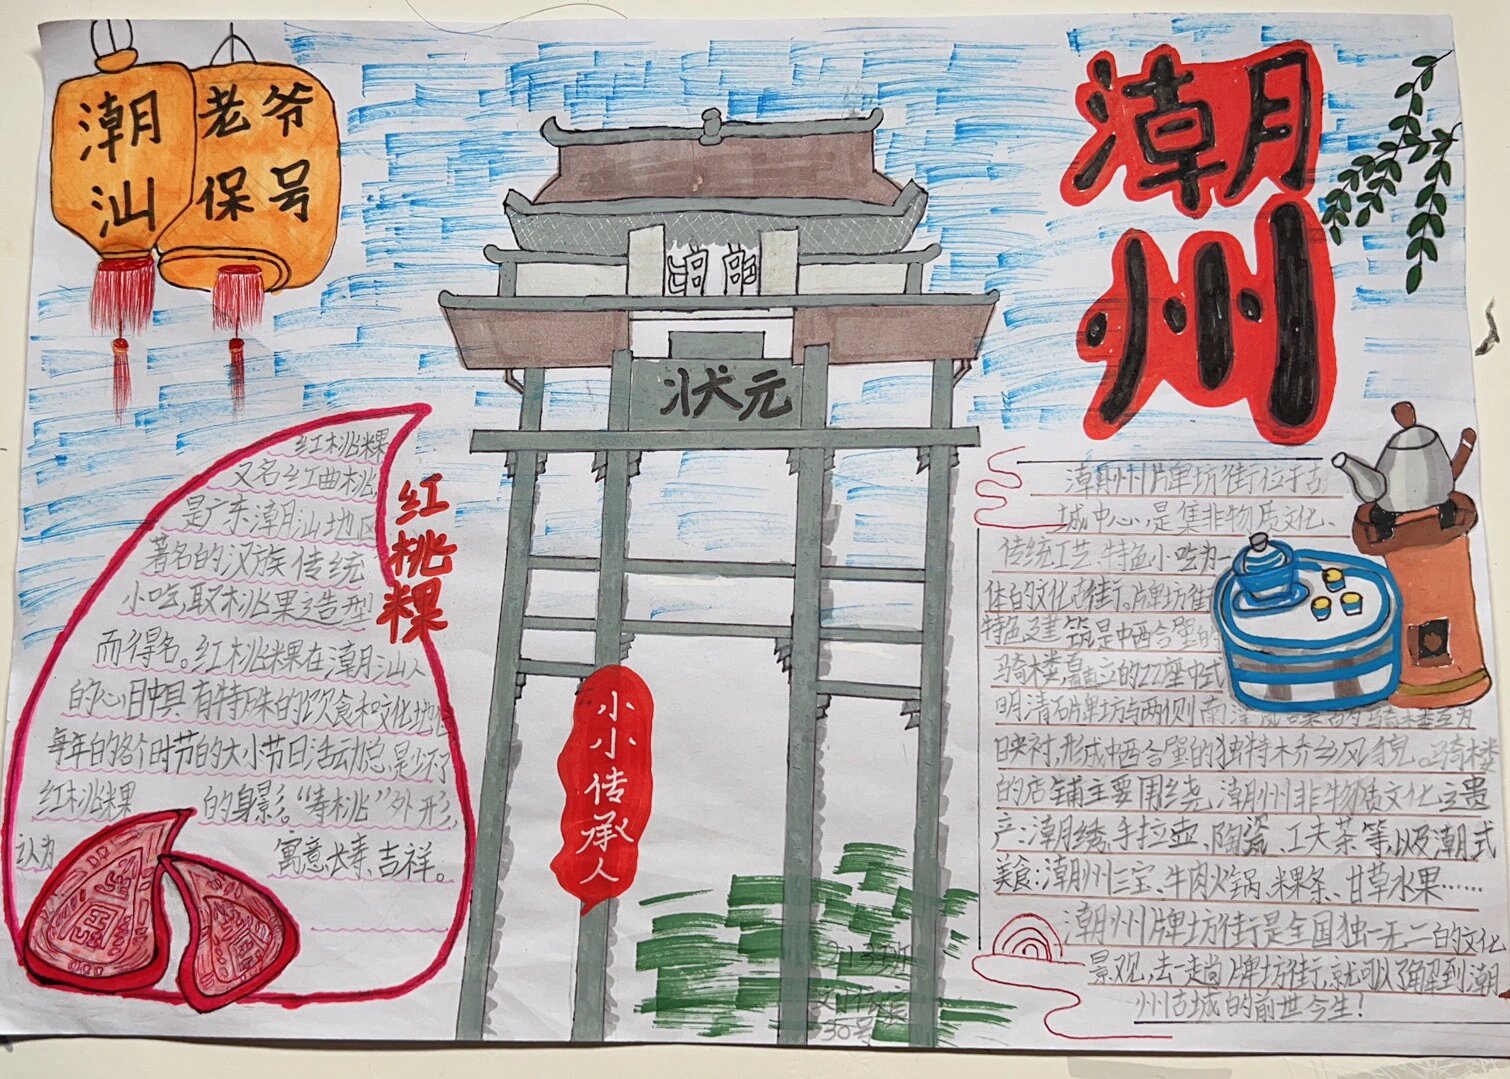 潮汕
老爷
保号
潮州
状元
小小传承人
红桃粿
红桃粿
又名红曲桃,
是广东潮汕地区
著名的汉族传统
小吃,取桃果造型
而得名。红桃粿在潮汕人
的心目中具有特殊的饮食和文化地位
每年的各个时节的大小节日活动总是少不了
红桃粿的身影。“寿桃”外形,
认为寓意长寿、吉祥。
潮州牌坊街位于古
城中心,是集非物质文化、
传统工艺、特色小吃为一
体的文化古街。牌坊街
特色建筑是中西合璧的
骑楼,矗立的22座中式
明清石牌坊与两侧南洋
映衬,形成中西合璧的独特木乔乡风貌。骑楼
的店铺主要围绕潮州非物质文化遗
产:潮绣、手拉壶、陶瓷、工夫茶等,以及潮式
美食:潮州三宝、牛肉火锅、粿条、甘草水果……
潮州牌坊街是全国独一无二的文化
景观,去一趟牌坊街,就可以了解到潮
州古城的前世今生!
30号